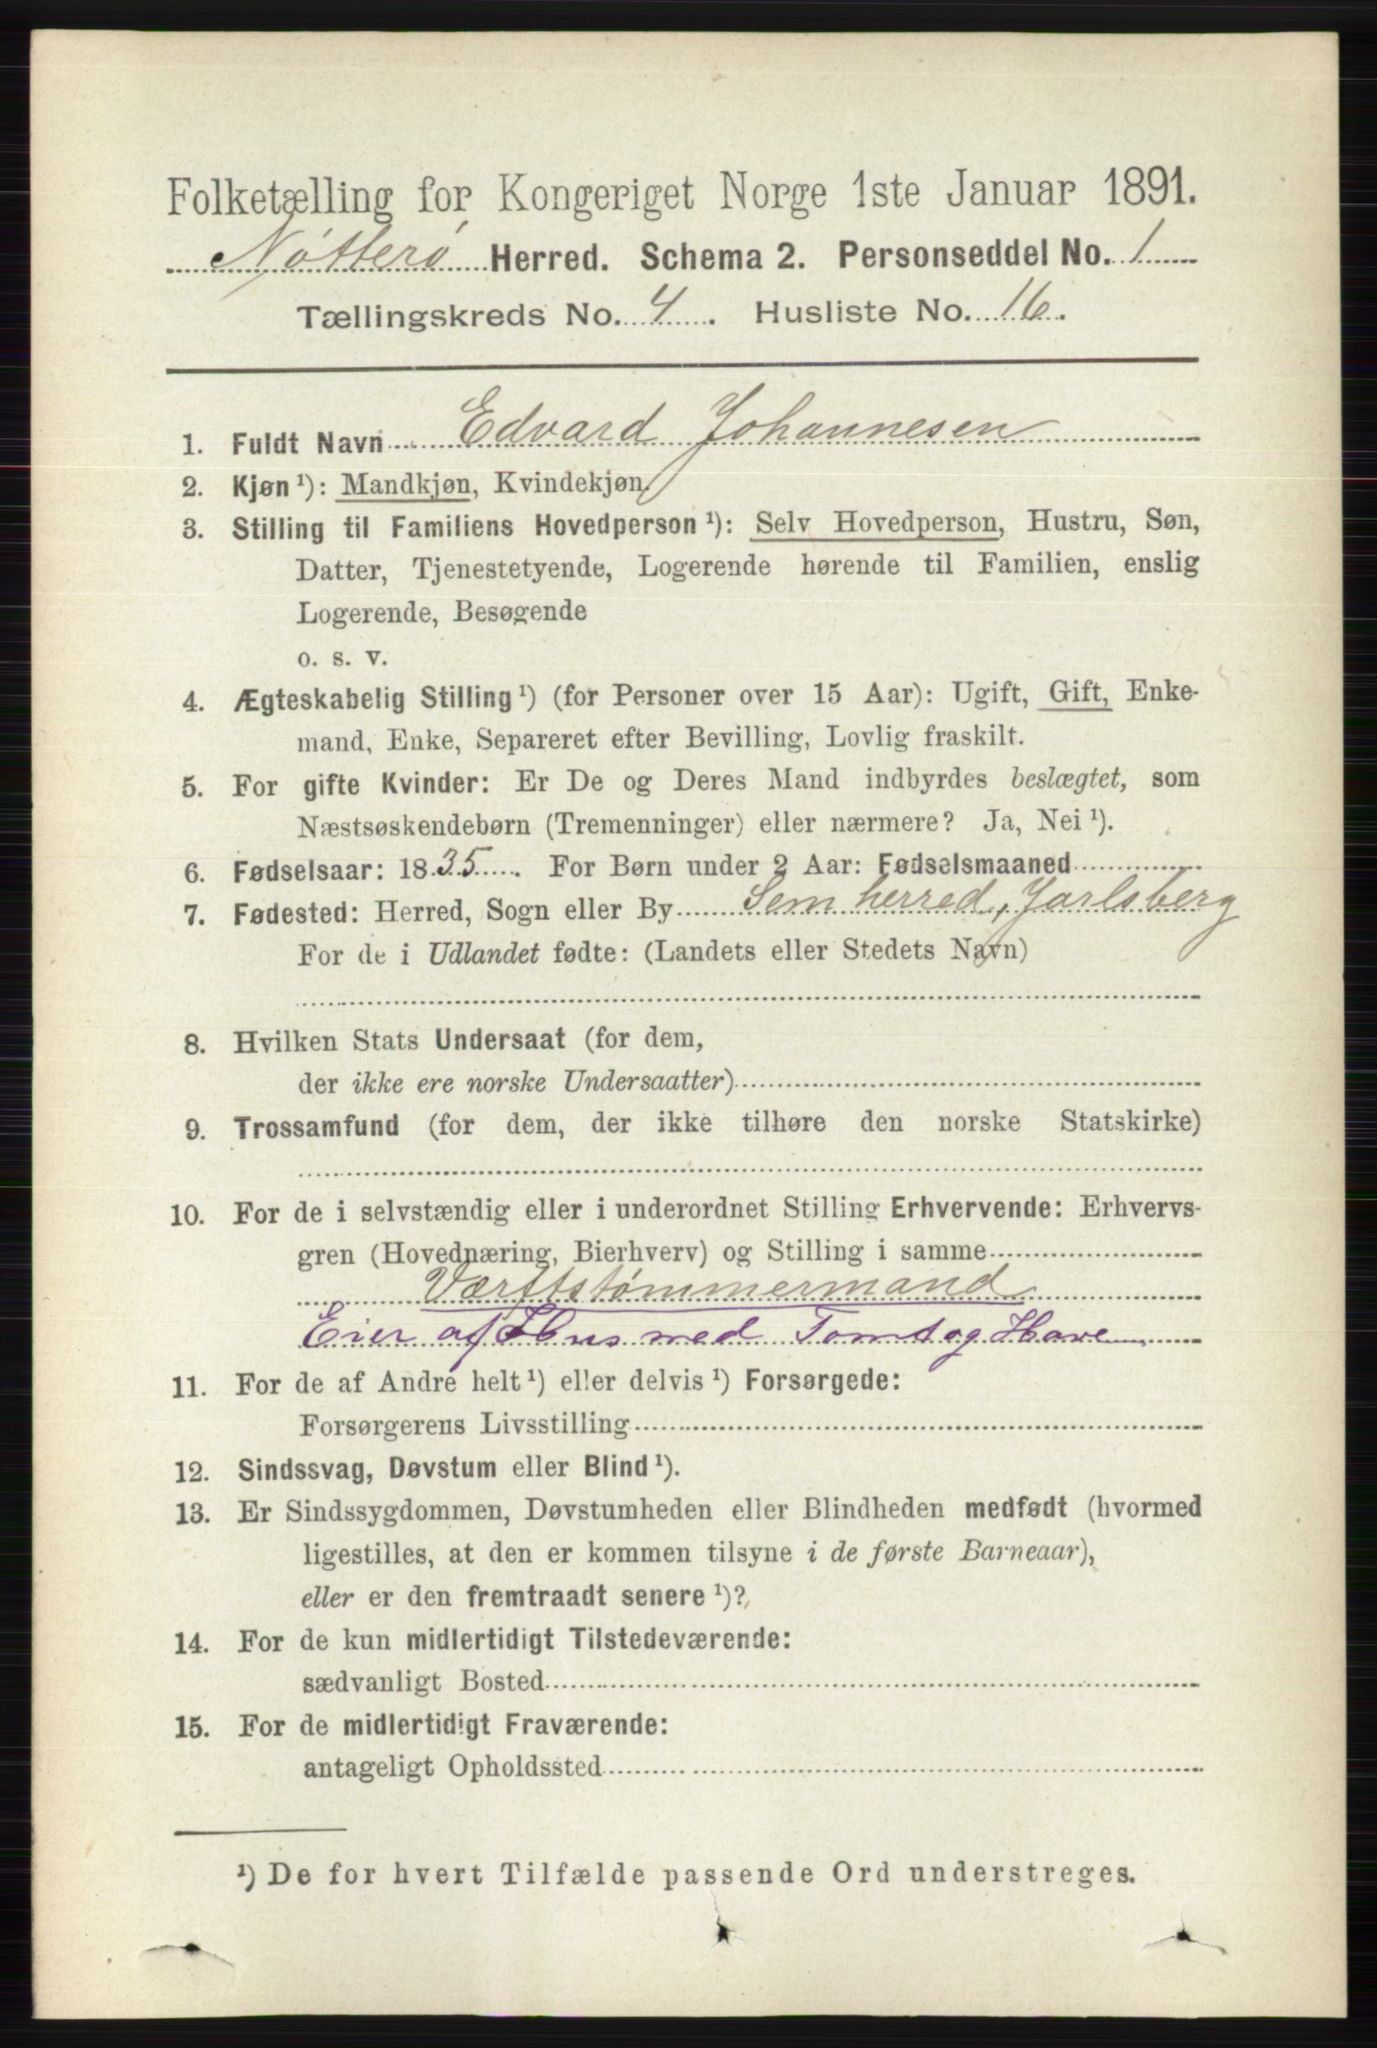 Folketælling for Kongeriget Norge 1ste Januar 1891.
Nøtterø Herred. Schema 2. Personseddel No. 1
Tællingskreds No. 4. Husliste No. 16.
1. Fuldt Navn Edvard Johannesen
2. Kjøn¹): Mandkjøn, Kvindekjøn.
3. Stilling til Familiens Hovedperson¹): Selv Hovedperson, Hustru, Søn,
Datter, Tjenestetyende, Logerende hørende til Familien, enslig
Logerende, Besøgende
o. s. v.
4. Ægteskabelig Stilling¹) (for Personer over 15 Aar): Ugift, Gift, Enke-
mand, Enke, Separeret efter Bevilling, Lovlig fraskilt.
5. For gifte Kvinder: Er De og Deres Mand indbyrdes beslægtet, som
Næstsøskendebørn (Tremenninger) eller nærmere? Ja, Nei¹).
6. Fødselsaar: 1835. For Børn under 2 Aar: Fødselsmaaned
7. Fødested: Herred, Sogn eller By Sem herred, Jarlsberg
For de i Udlandet fødte: (Landets eller Stedets Navn)
8. Hvilken Stats Undersaat (for dem,
der ikke ere norske Undersaatter)
9. Trossamfund (for dem, der ikke tilhøre den norske Statskirke)
10. For de i selvstændig eller i underordnet Stilling Erhvervende: Erhvervs-
gren (Hovednæring, Bierhverv) og Stilling i samme
Værftstømmermand
Eier af Hus med Tomt og Have
11. For de af Andre helt¹) eller delvis¹) Forsørgede:
Forsørgerens Livsstilling
12. Sindssvag, Døvstum eller Blind¹).
13. Er Sindssygdommen, Døvstumheden eller Blindheden medfødt (hvormed
ligestilles, at den er kommen tilsyne i de første Barneaar),
eller er den fremtraadt senere¹)?
14. For de kun midlertidigt Tilstedeværende:
sædvanligt Bosted
15. For de midlertidigt Fraværende:
antageligt Opholdssted
¹) De for hvert Tilfælde passende Ord understreges.